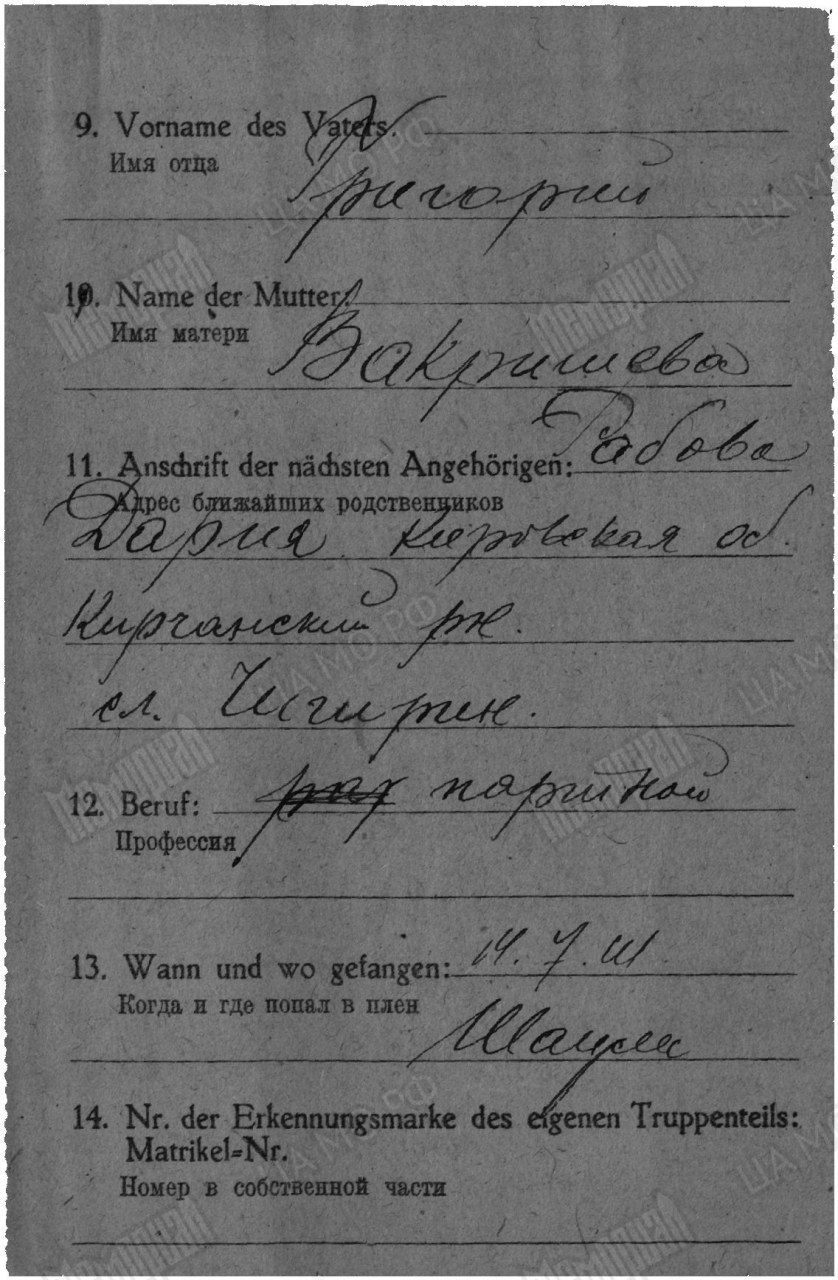 9. Vorname des Vaters.
Имя отца
Григорий
10. Name der Mutter:
Имя матери
Вакришева
11. Anschrift der nächsten Angehörigen: Рабова
Адрес ближайших родственников
Дария Кировская об.
Кирчанский рн.
сл. Чигирин.
12. Beruf: портной
Профессия
13. Wann und wo gefangen: 14. 7. 41
Когда и где попал в плен
Шаули
14. Nr. der Erkennungsmarke des eigenen Truppenteils:
Matrikel=Nr.
Номер в собственной части